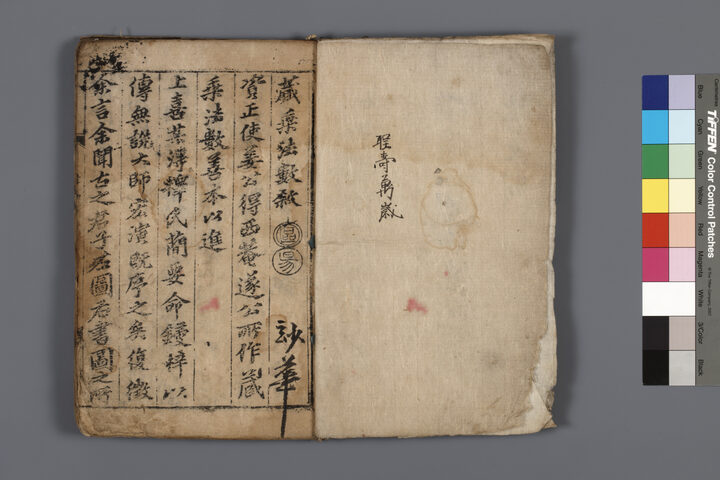 聖壽萬歲
藏乘法數敘
資正使姜公得西菴遂公所作藏
乘法數善本以進
上喜其 簡要命鋟梓以
傳無說大師宏演旣序之矣復徵
余言余聞古之君子左圖右書圖之所
華
TIFFEN Color Control Patches
Blue
Cyan
Green
Yellow
Red
Magenta
White
3/Color
Black